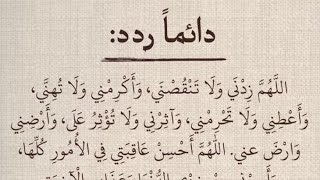 دائماً ردد:
اللَّهُمَّ زِدْنِي وَلَا تَنْقُصْنِي، وَأَكْرِمْنِي وَلَا تُهِنِّي،
وَأَعْطِنِي وَلَا تَحْرِمْنِي، وَآثِرْنِي وَلَا تُؤْثِرْ عَلَيَ، وَأَرْضِنِي
وَارْضَ عني. اللَّهُمَّ أَحْسِنْ عَاقِبَتِي فِي الأُمُورِ كُلِّهَا،